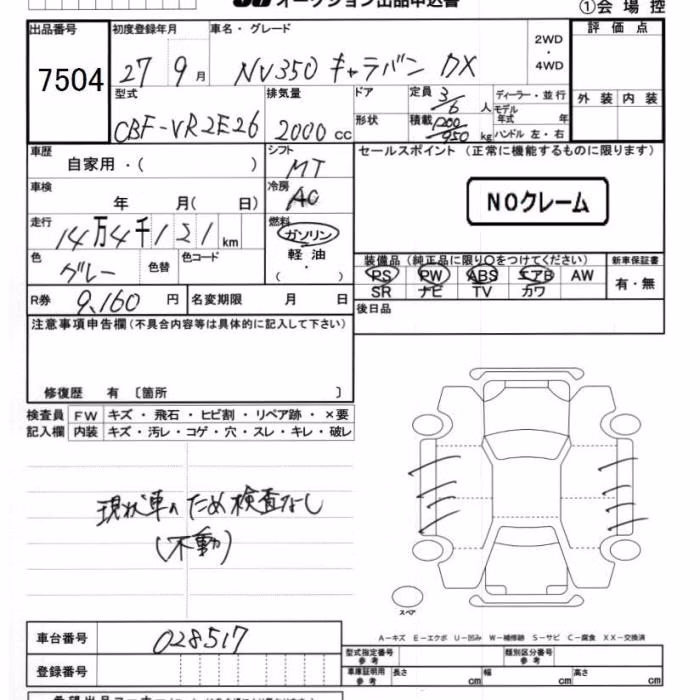 オークション出品申込書 ①会場控
出品番号 初度登録年月 車名・グレード 評価点
7504 27 9月 NV350 キャラバン DX 2WD・4WD
型式 排気量 ドア 定員 3/6 人 ディーラー・並行 外装 内装
CBF-VR2E26 2000 cc 形状 積載 1200/950 kg モデル年式 年 ハンドル 左・右
車歴 シフト セールスポイント (正常に機能するものに限ります)
自家用・( ) MT
車検 冷房 NOクレーム
年 月( 日) AC
走行 燃料
14万4千121 km ガソリン
色 色替 色コード 軽油 装備品 (純正品に限り○をつけてください) 新車保証書
グレー ・ PS PW ABS エアB AW 有・無
( ) SR ナビ TV カワ
R券 9,160 円 名変期限 月 日 後日品
注意事項申告欄(不具合内容等は具体的に記入して下さい)
修復歴 有 〔箇所 〕
検査員 FW キズ・飛石・ヒビ割・リペア跡・×要
記入欄 内装 キズ・汚レ・コゲ・穴・スレ・キレ・破レ
現状車のため検査なし
(不動)
スペア
A-キズ E-エクボ U-凹み W-補修跡 S-サビ C-腐食 XX-交換済
車台番号 028517 型式指定番号 参考 類別区分番号 参考
登録番号 車庫証明用 参考 長さ cm 幅 cm 高さ cm